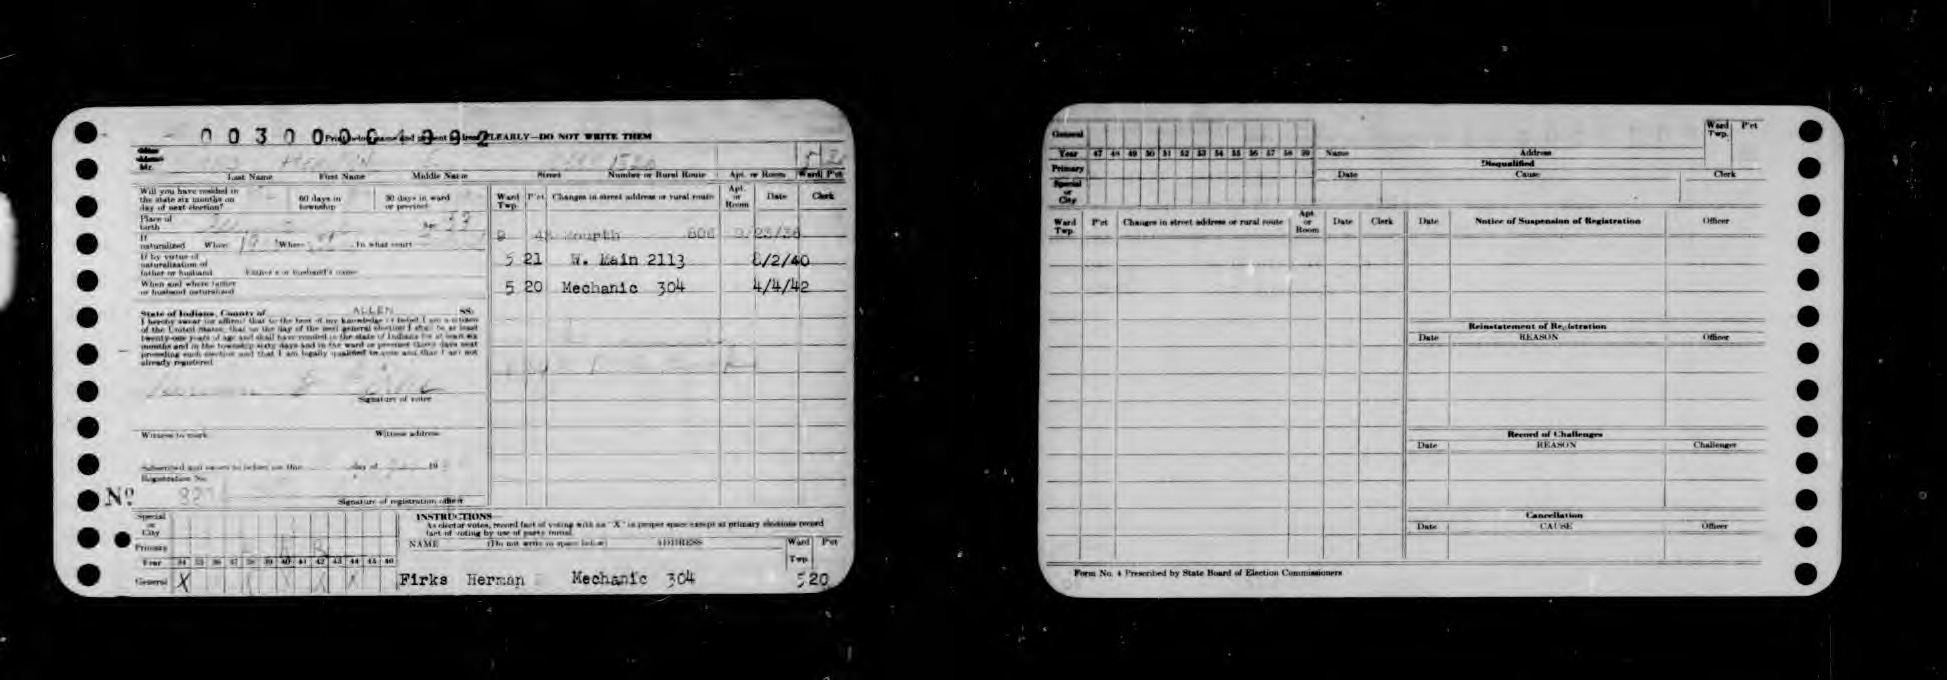 0030000 4992
Print below name and present address CLEARLY—DO NOT WRITE THEM
Mr. 1520 5 20
Last Name First Name Middle Name Street Number or Rural Route Apt. or Room Ward P'ct
Will you have resided in
the state six months on
day of next election?
60 days in
township
30 days in ward
or precinct
Place of
birth
Age 33
If
naturalized When Where In what court
If by virtue of
naturalization of
father or husband Father's or husband's name
When and where father
or husband naturalized
State of Indiana, County of ALLEN SS:
I hereby swear (or affirm) that to the best of my knowledge and belief I am a citizen
of the United States; that on the day of the next general election I shall be at least
twenty-one years of age and shall have resided in the state of Indiana for at least six
months and in the township sixty days and in the ward or precinct thirty days next
preceding such election and that I am legally qualified to vote and that I am not
already registered.
Signature of voter
Witness to mark Witness address
Subscribed and sworn to before me this day of 19
Registration No.
No
Signature of registration officer
Ward
Twp. P'ct Changes in street address or rural route Apt.
or
Room Date Clerk
Fourth 606
5 21 W. Main 2113 8/2/40
5 20 Mechanic 304 4/4/42
INSTRUCTIONS—
As elector votes, record fact of voting with an "X" in proper space except at primary elections record
fact of voting by use of party initial.
NAME (Do not write in space below) ADDRESS Ward
Twp. P'ct
Special
or
City
Primary
Year 34 35 36 37 38 39 40 41 42 43 44 45 46
General X
Firks Herman Mechanic 304 5 20
General
Year 47 48 49 50 51 52 53 54 55 56 57 58 59
Primary
Special
or
City
Name Address
Ward
Twp. P'ct
Disqualified
Date Cause Clerk
Ward
Twp. P'ct Changes in street address or rural route Apt.
or
Room Date Clerk
Date Notice of Suspension of Registration Officer
Reinstatement of Registration
Date REASON Officer
Record of Challenges
Date REASON Challenger
Cancellation
Date CAUSE Officer
Form No. 4 Prescribed by State Board of Election Commissioners